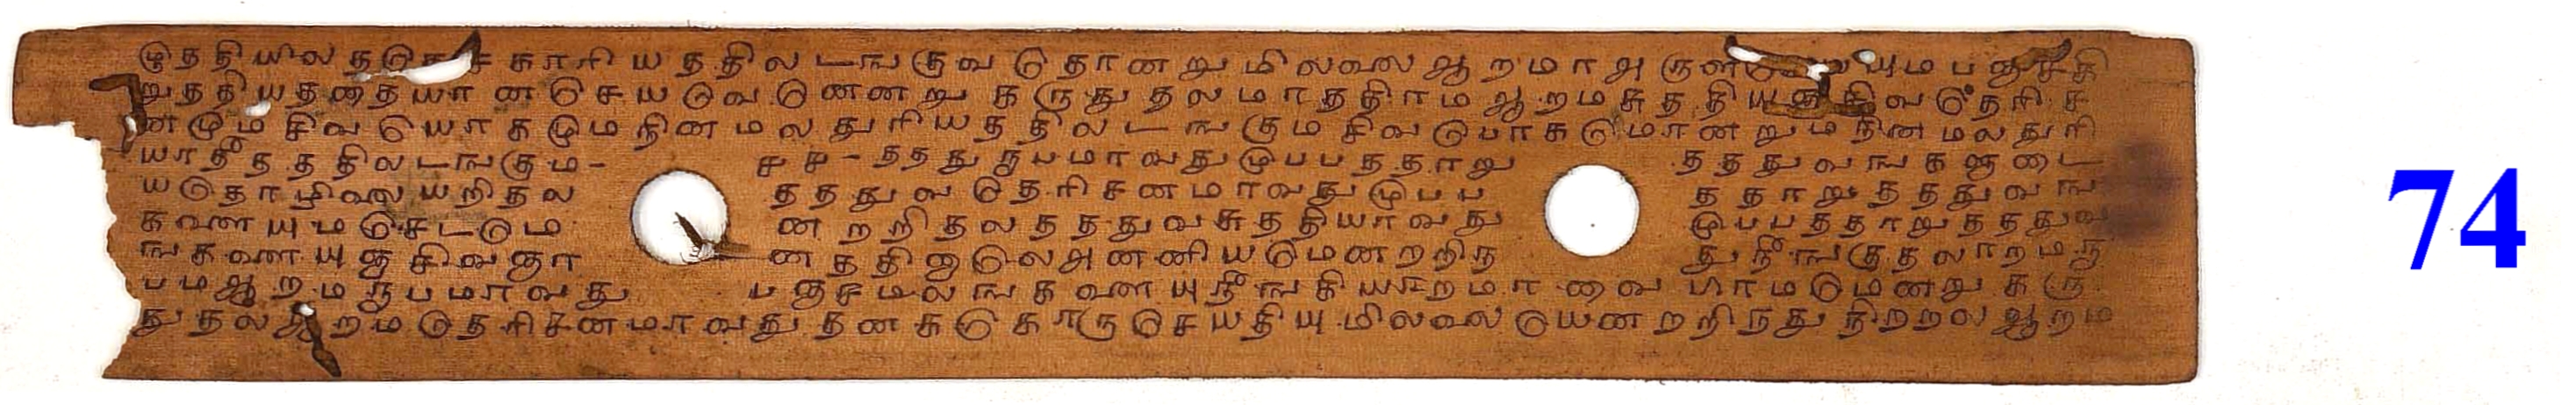 ழுததியிலதடுசச காரியததிலடஙகுவ டுதானறுமிலலை ஆறமாஅருள யுமபஞசசி
றுததியதனதையான டுசயடுவடுணனறு கருதுதலமாததிரம ஆறமசுததியஞசிவடுதரிச
னமுமசிவயோகமுமநினமலதுரியததிலடஙகுமசிவடுபாகடுமானறுமநினமலதுரி
யாதீதததிலடஙகும- சுசு-தததுநுபமாவதுமுபபததாறு தததுவஙகளுடை
யடுதாழிலையறிதல தததுவடுதரிசனமாவதுமுபப ததாறுதததுவங
களையுமடுசடடும னறறிதலதததுவசுததியாவது முபபததாறுதததுவ
ஙகளையுஞசிவஞா னததினுடுலஅனனியடுமனறறிந துநீஙகுதலாறமநு
பமஆறமநுபமாவது பஞசமலஙகளையுநீஙகியாறமா வை ராமடுமனறு கரு
துதலஆறமடுதரிசனமாவது தனசுடுகாருடுசயதியுமிலலை டுயனறறிநதுநிறறலஆறம
74